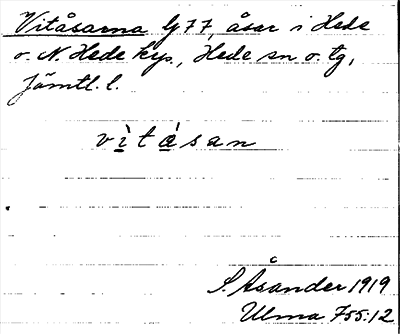 Vitåsarna G77, åsar i Hede
o. N. Hede kys, Hede sn o. tg,
Jämtl. l.
vìtásan
S. Åsander 1919
Ulma 755:12